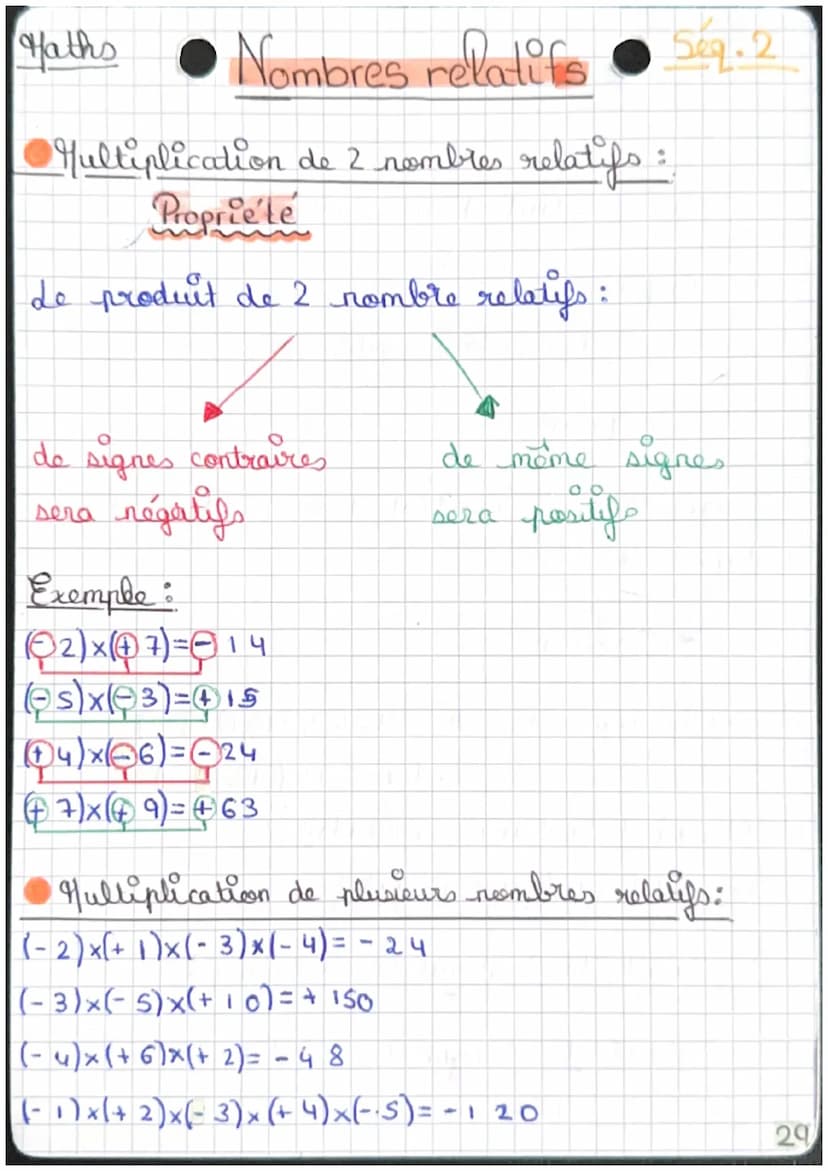 Maths
Nombres relatifs
Séq. 2
Multiplication de 2 nombres relatifs :
Propriété
Le produit de 2 nombre relatifs :
de signes contraires
sera négatifs
de même signes
sera positifs
Exemple :
(-2)×(+7)=-14
(-5)×(-3)=+15
(+4)×(-6)=-24
(+7)×(+9)=+63
Multiplication de plusieurs nombres relatifs:
(-2)×(+1)×(-3)×(-4)=-24
(-3)×(-5)×(+10)=+150
(-4)×(+6)×(+2)=-48
(-1)×(+2)×(-3)×(+4)×(-5)=-120
29